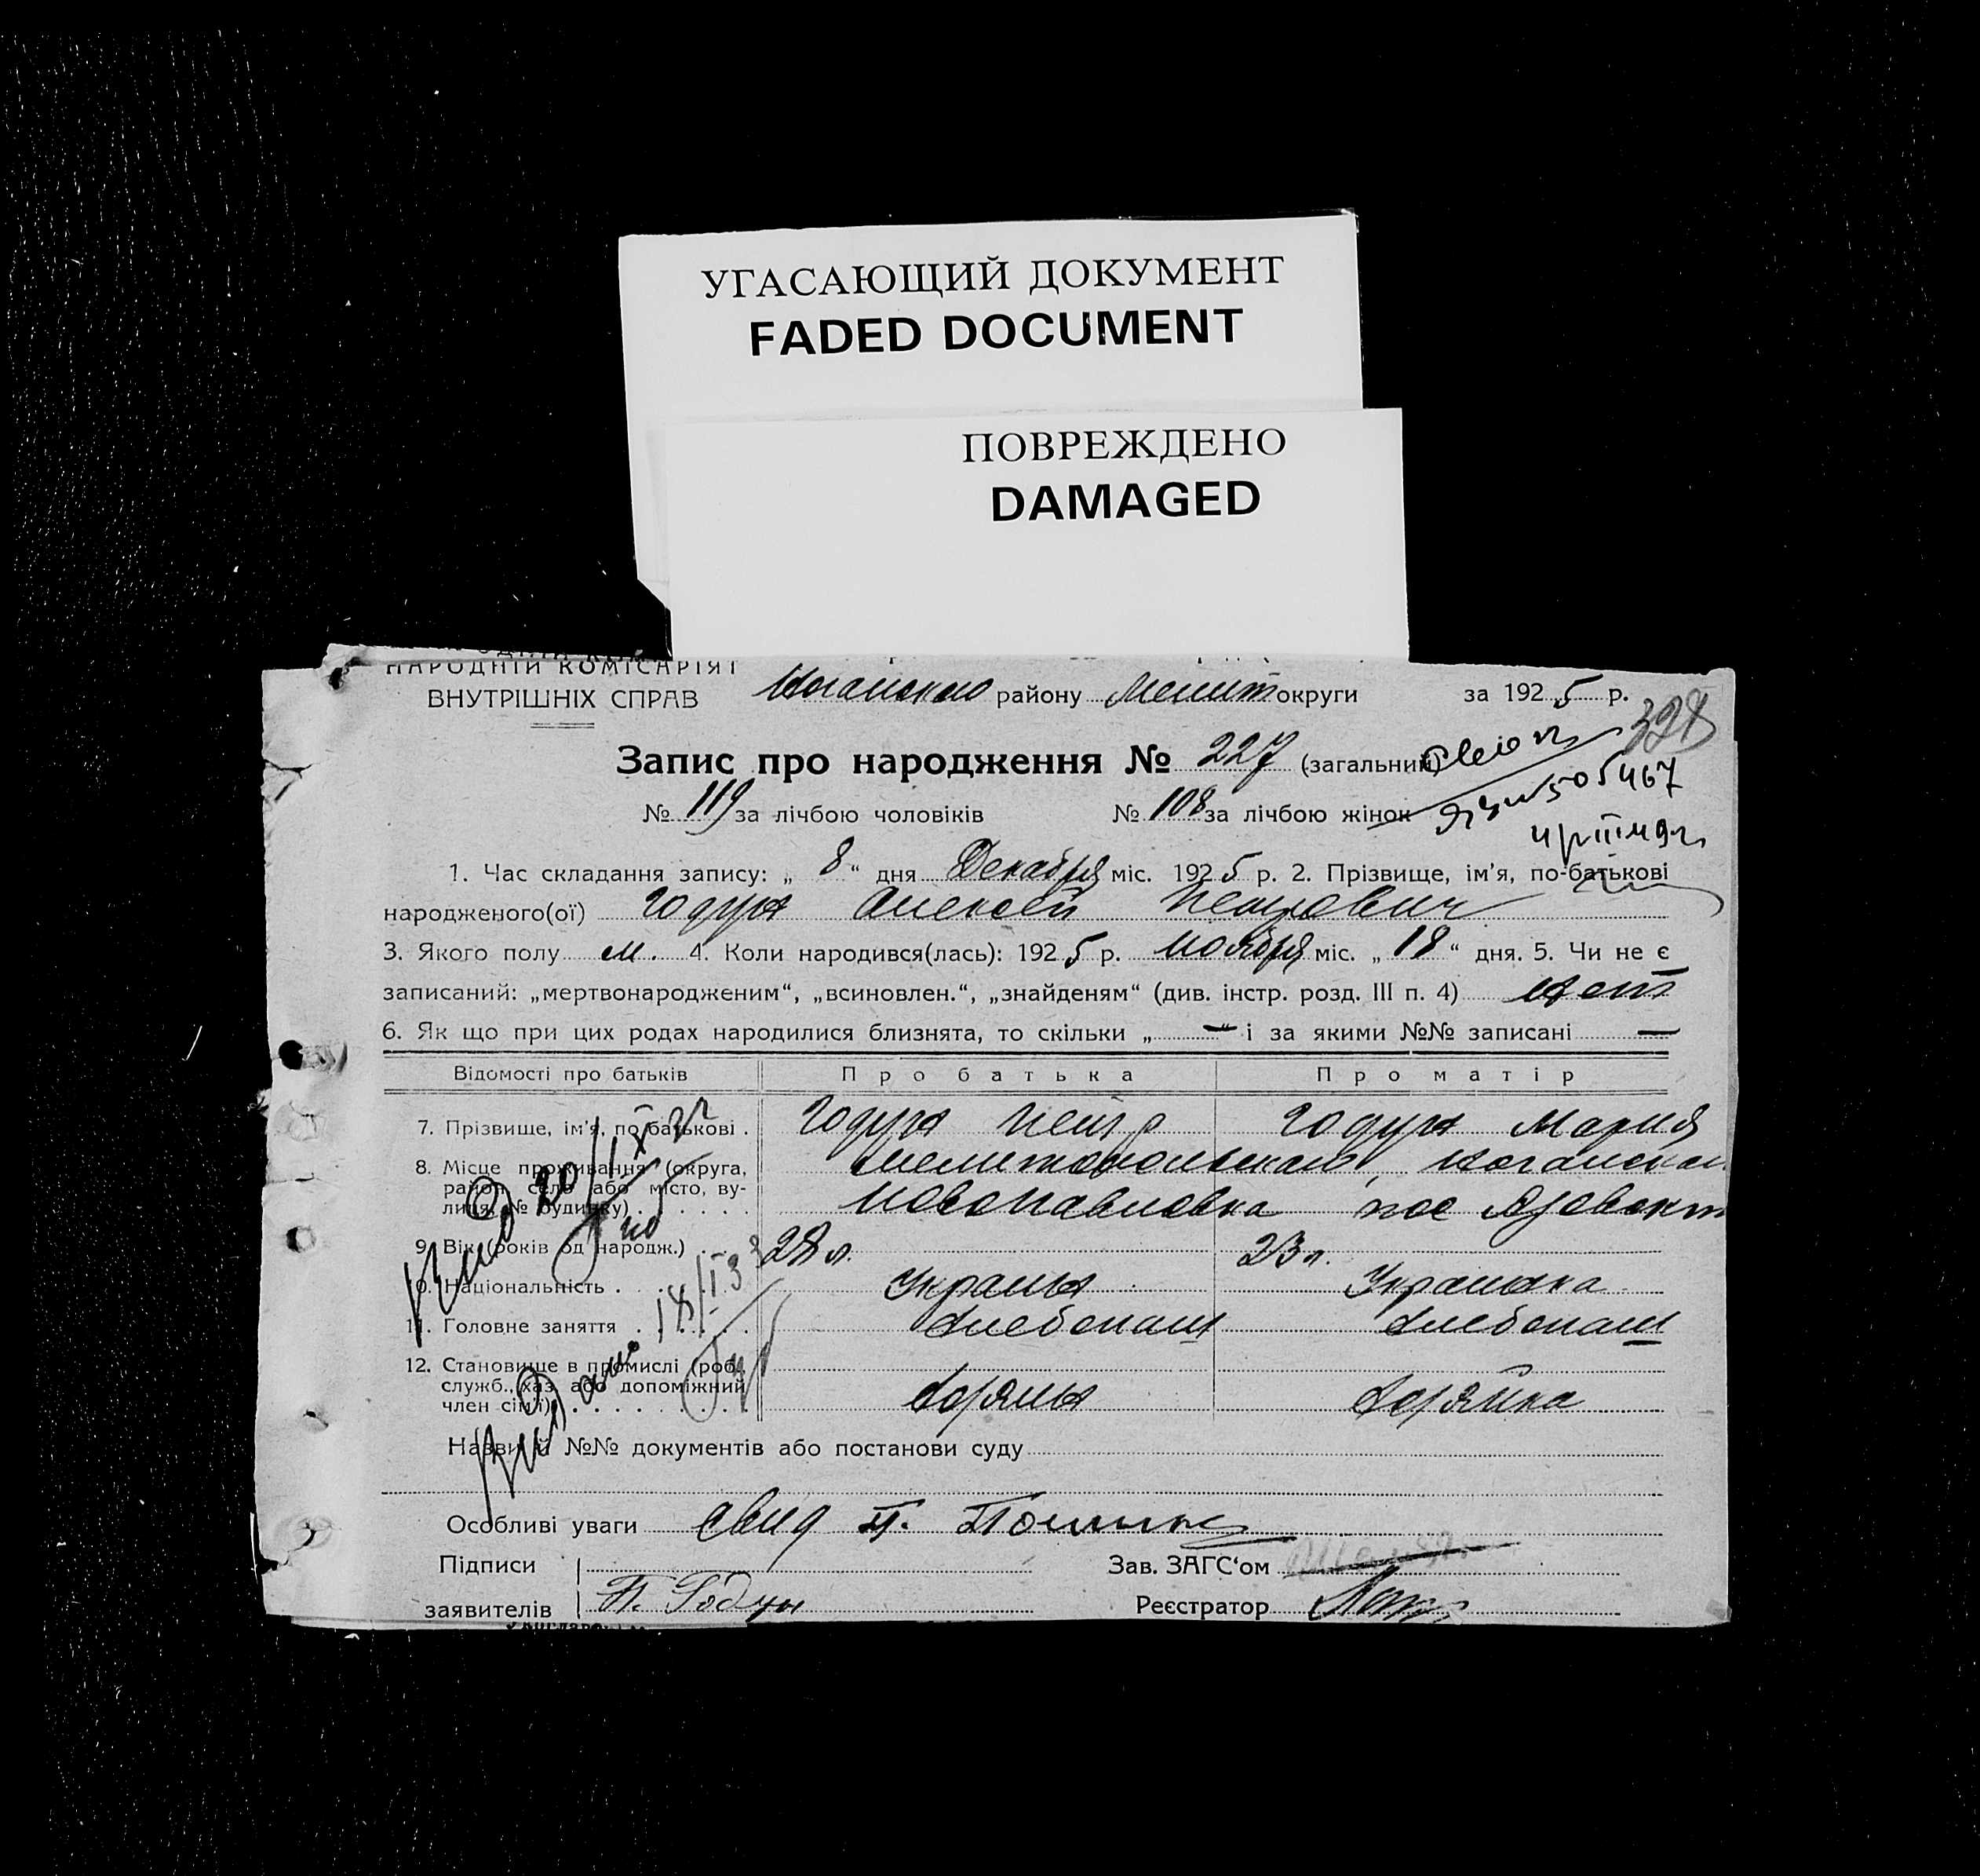 УГАСАЮЩИЙ ДОКУМЕНТ
FADED DOCUMENT
ПОВРЕЖДЕНО
DAMAGED
НАРОДНІЙ КОМІСАРІЯТ
ВНУТРІШНІХ СПРАВ
району Мелит округи за 1925 р.
328
Запис про народження № 227 (загальний)
505467
№ 119 за лічбою чоловіків № 108 за лічбою жінок
1. Час складання запису: „ 8 “ дня Декабря міс. 1925 р. 2. Прізвище, ім'я, по-батькові
народженого(ої) Годуня Алексей Петрович
3. Якого полу м. 4. Коли народився(лась): 1925 р. Ноября міс. „ 18 “ дня. 5. Чи не є
записаний: „мертвонародженим“, „всиновлен.“, „знайденям“ (див. інстр. розд. III п. 4) Нет
6. Як що при цих родах народилися близнята, то скільки „ — “ і за якими №№ записані —
Відомості про батьків Про батька Про матір
7. Прізвище, ім'я, по батькові . Годуня Петр Годуня Мария
8. Місце проживання (округа, Мелитопольского,
район, село або місто, ву-
лиця, № будинку) . . . . . . . Новопавловка пос Азовск
9. Вік (років од народж.) . . . 28 л. 23 л.
10. Національність . Украинец Украинка
11. Головне заняття . . . . . . Хлебопаш Хлебопаш
12. Становище в промислі (роб.,
служб., хаз. або допоміжний
член сім'ї) . . . . . . . . . Хозяин Хозяйка
Назви й №№ документів або постанови суду
Особливі уваги свид П.
Підписи Зав. ЗАГС'ом
заявителів П. Годун Реєстратор